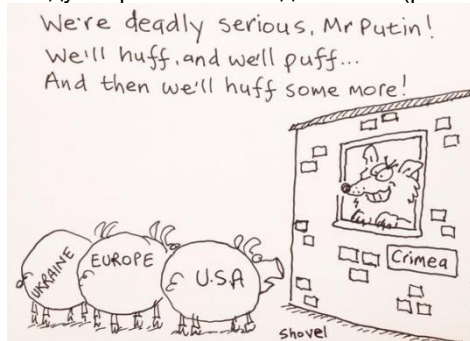 We're deadly serious, Mr Putin!
We'll huff, and we'll puff...
And then we'll huff some more!
Crimea
UKRAINE
EUROPE
U.S.A
shovel